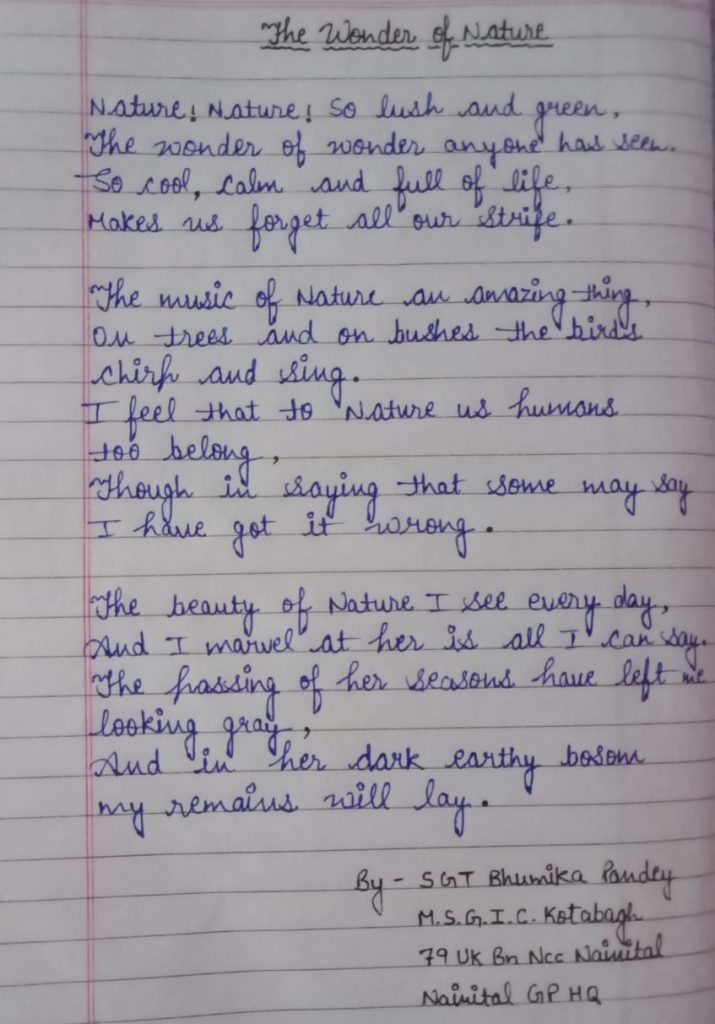 The Wonder of Nature
Nature! Nature! So lush and green,
The wonder of wonder anyone has seen.
So cool, calm and full of life,
Makes us forget all our strife.
The music of Nature an amazing thing,
On trees and on bushes the birds
chirp and sing.
I feel that to Nature us humans
too belong,
Though in saying that some may say
I have got it wrong.
The beauty of Nature I see every day,
And I marvel at her is all I can say.
The passing of her seasons have left me
looking gray,
And in her dark earthy bosom
my remains will lay.
By - SGT Bhumika Pandey
M.S.G.I.C. Kotabagh
79 UK Bn Ncc Nainital
Nainital GP HQ